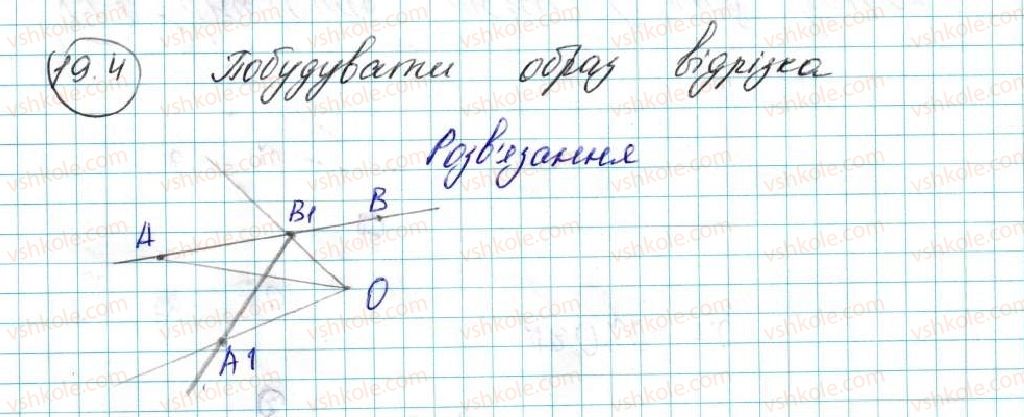 19.4 Побудувати образ відрізка
Розв'язання
B1 B
A
O
A1